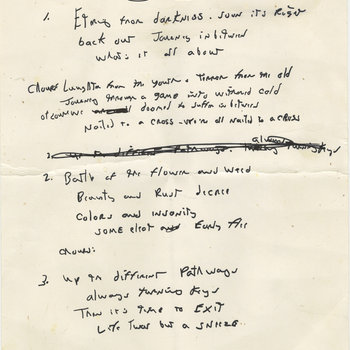 1. Etory from darkness. soon it's Right
back out Journey inbetween
what's it all about
Chorus Laughter from the youth + tinner from the old
Journey through a game into withered cold
of doomed to suffer in between
Nailed to a cross - we're all nailed to a cross
always
2. Battle of the flower and weed
Beauty and Rust decree
Colors and insanity
some elect and Early
Chorus:
3. up in different Pathways
always turning keys
Then it's time to EXIT
Life twas but a SNEEZE.